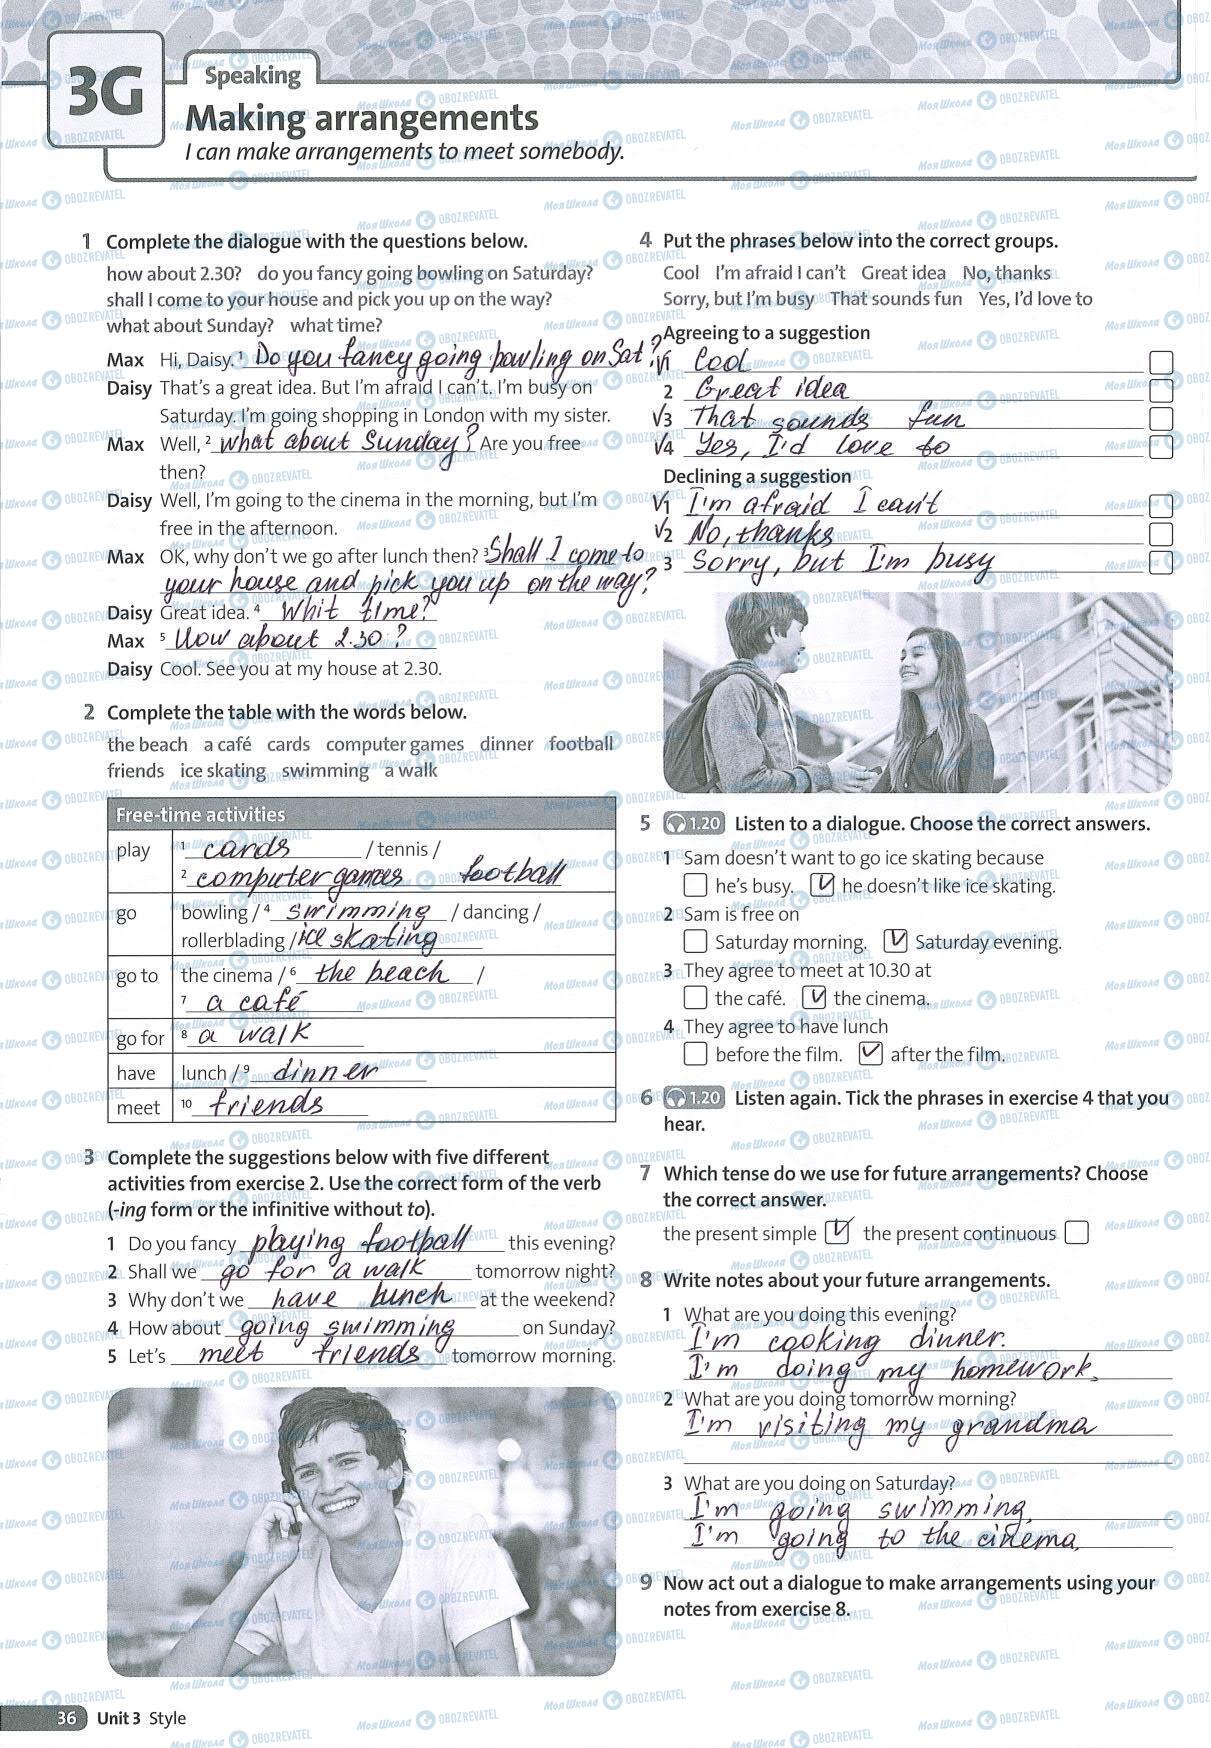 3G
Speaking
Making arrangements
I can make arrangements to meet somebody.
1 Complete the dialogue with the questions below.
how about 2.30? do you fancy going bowling on Saturday?
shall I come to your house and pick you up on the way?
what about Sunday? what time?
Max Hi, Daisy. 1 Do you fancy going bowling on Sat?
Daisy That's a great idea. But I'm afraid I can't. I'm busy on
Saturday. I'm going shopping in London with my sister.
Max Well, 2 what about Sunday? Are you free
then?
Daisy Well, I'm going to the cinema in the morning, but I'm
free in the afternoon.
Max OK, why don't we go after lunch then? 3 Shall I come to
your house and pick you up on the way?
Daisy Great idea. 4 Whit time?
Max 5 How about 2.30?
Daisy Cool. See you at my house at 2.30.
2 Complete the table with the words below.
the beach a café cards computer games dinner football
friends ice skating swimming a walk
Free-time activities
play 1 cards / tennis /
2 computer games football
go bowling / 4 swimming / dancing /
rollerblading / ice skating
go to the cinema / 6 the beach /
7 a café
go for 8 a walk
have lunch / 9 dinner
meet 10 friends
3 Complete the suggestions below with five different
activities from exercise 2. Use the correct form of the verb
(-ing form or the infinitive without to).
1 Do you fancy playing football this evening?
2 Shall we go for a walk tomorrow night?
3 Why don't we have lunch at the weekend?
4 How about going swimming on Sunday?
5 Let's meet friends tomorrow morning.
4 Put the phrases below into the correct groups.
Cool I'm afraid I can't Great idea No, thanks
Sorry, but I'm busy That sounds fun Yes, I'd love to
Agreeing to a suggestion
V1 Cool
2 Great idea
V3 That sounds fun
V4 Yes, I'd love to
Declining a suggestion
V1 I'm afraid I can't
V2 No, thanks
3 Sorry, but I'm busy
5 1.20 Listen to a dialogue. Choose the correct answers.
1 Sam doesn't want to go ice skating because
he's busy. V he doesn't like ice skating.
2 Sam is free on
Saturday morning. V Saturday evening.
3 They agree to meet at 10.30 at
the café. V the cinema.
4 They agree to have lunch
before the film. V after the film.
6 1.20 Listen again. Tick the phrases in exercise 4 that you
hear.
7 Which tense do we use for future arrangements? Choose
the correct answer.
the present simple V the present continuous
8 Write notes about your future arrangements.
1 What are you doing this evening?
I'm cooking dinner.
I'm doing my homework.
2 What are you doing tomorrow morning?
I'm visiting my grandma
3 What are you doing on Saturday?
I'm going swimming.
I'm going to the cinema.
9 Now act out a dialogue to make arrangements using your
notes from exercise 8.
36 Unit 3 Style
Моя Школа OBOZREVATEL